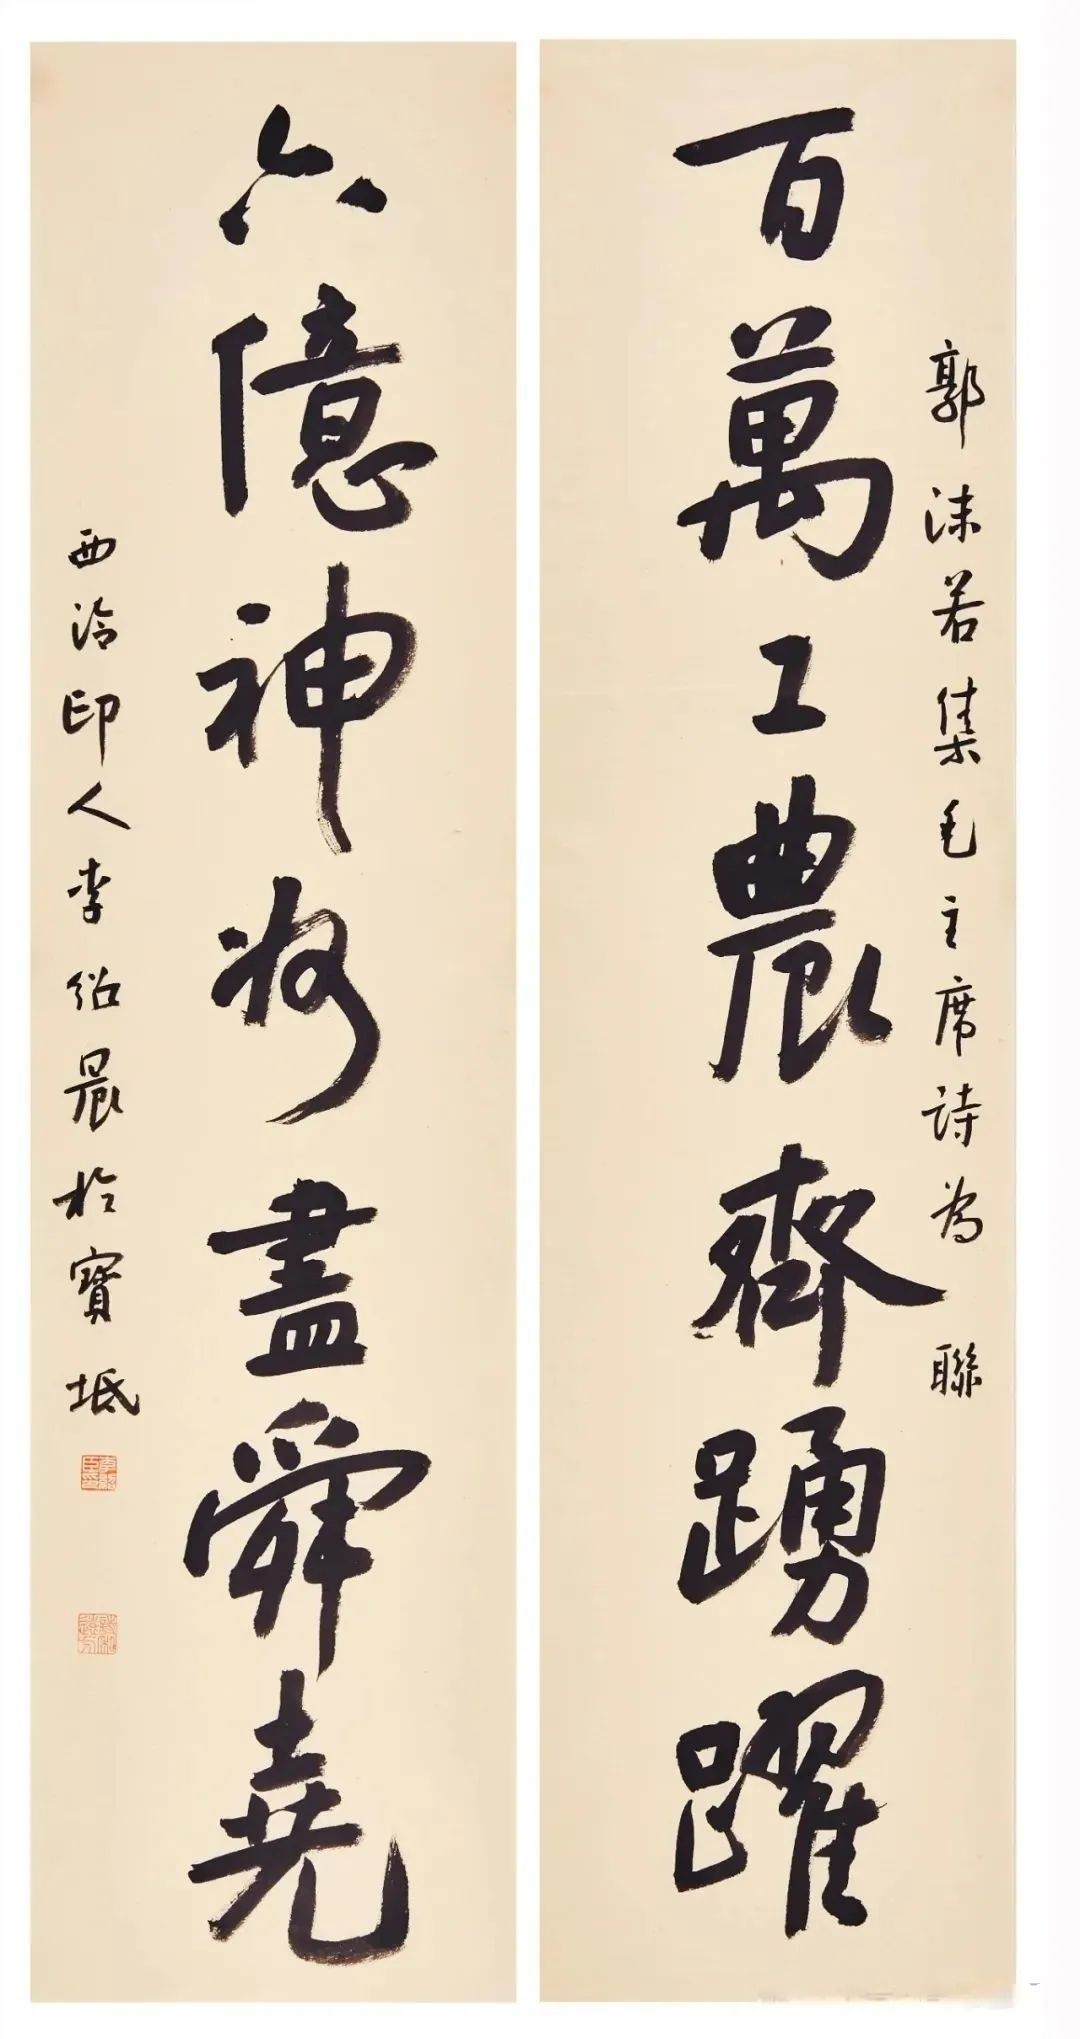 郭沫若集毛主席詩為聯
百萬工農齊踴躍
六億神州盡舜堯
西泠印人李紹晨於寶坻